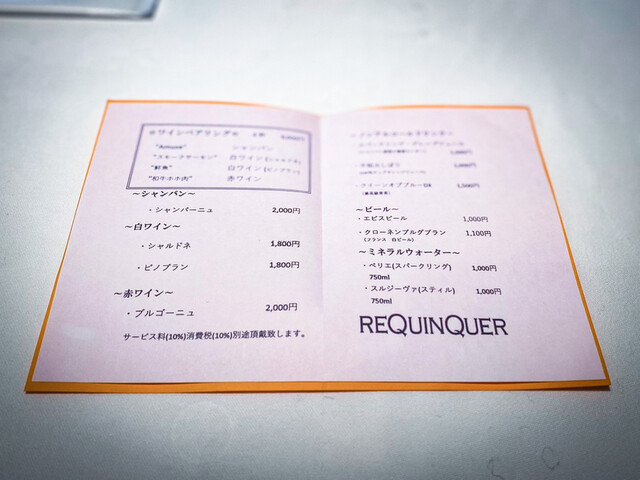 ☆ワインペアリング☆
"Amuse" シャンパン
"スモークサーモン" 白ワイン(シャルドネ)
"鮮魚" 白ワイン(ピノブラン)
"和牛ホホ肉" 赤ワイン
～シャンパン～
・シャンパーニュ 2,000円
～白ワイン～
・シャルドネ 1,800円
・ピノブラン 1,800円
～赤ワイン～
・ブルゴーニュ 2,000円
サービス料(10%)消費税(10%)別途頂戴致します。
～ノンアルコールドリンク～
・クイーンオブブルー 1,500円
～ビール～
・エビスビール 1,000円
・クローネンブルグブラン 1,100円
(フランス 白ビール)
～ミネラルウォーター～
・ペリエ(スパークリング) 1,000円
750ml
・スルジーヴァ(スティル) 1,000円
750ml
REQUINQUER